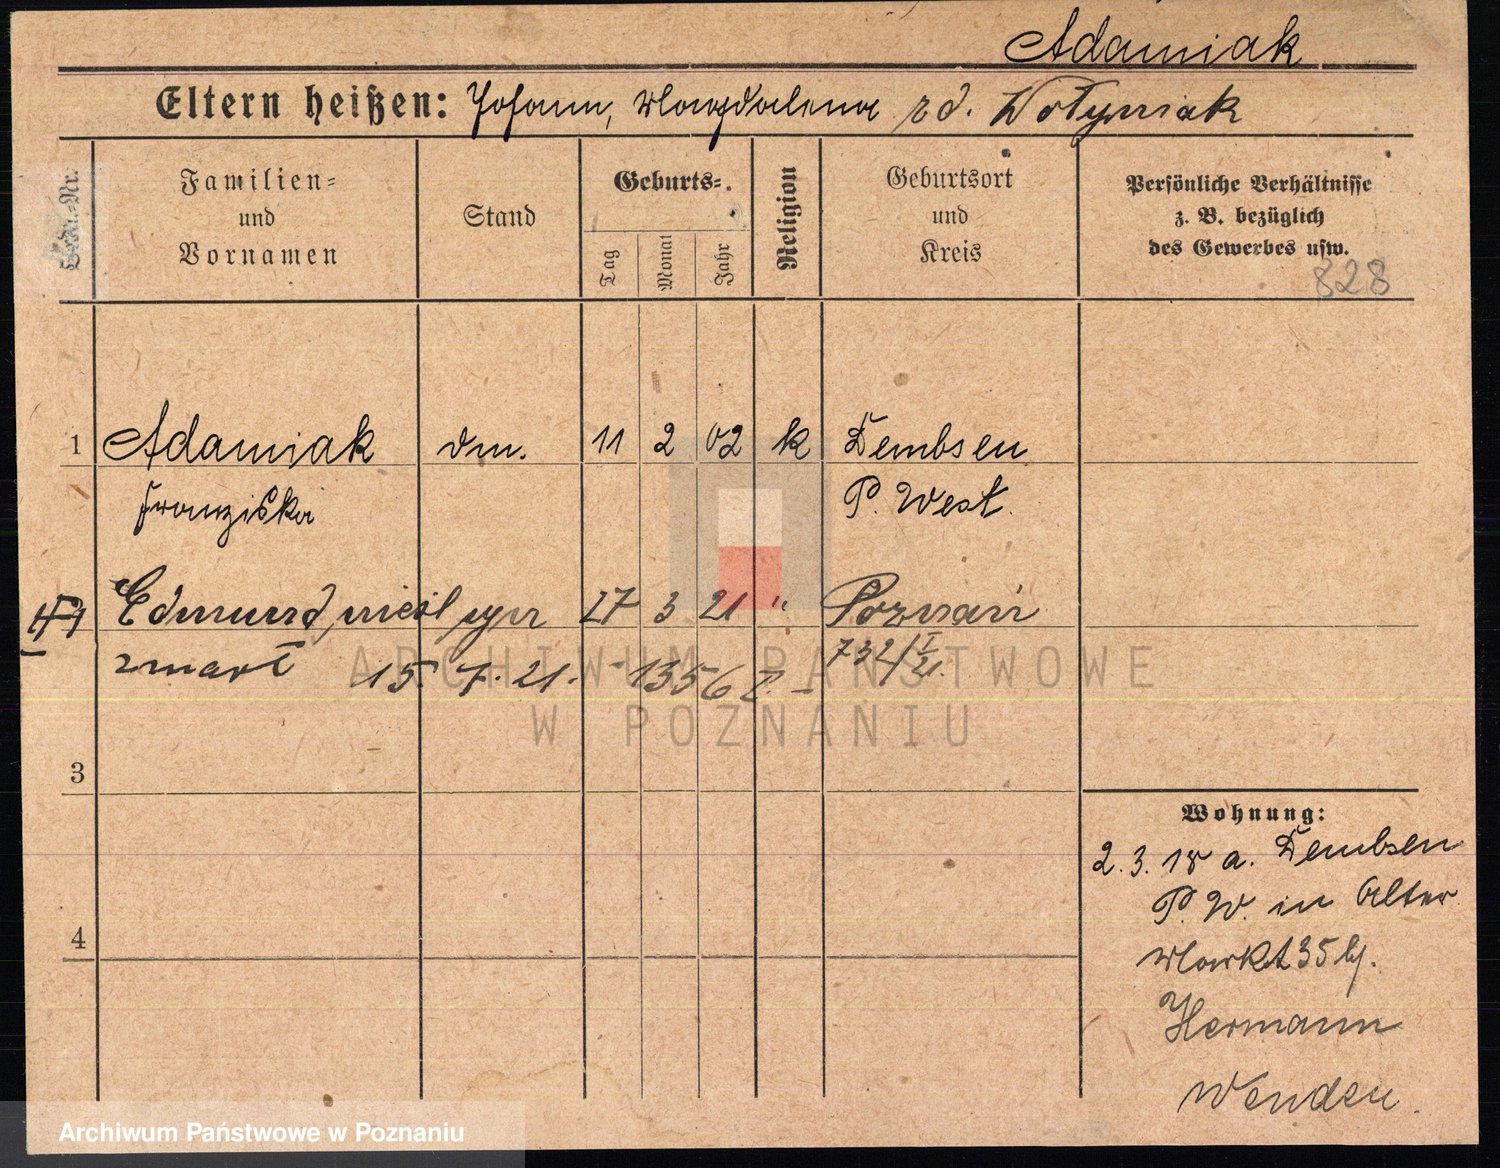 Adamiak
Eltern heißen: Johann, Magdalena zd. Wołyniak
Lfde.-Nr.
Familien= und Vornamen
Stand
Geburts=
Tag
Monat
Jahr
Religion
Geburtsort und Kreis
Persönliche Verhältnisse
z. B. bezüglich
des Gewerbes usw.
828
1 Adamiak dm. 11 2 02 k Dembsen
Franziska P. West.
Edmund, nieśl syn 27 3 21 " Poznań
zmarł 15. 7. 21. - 1356 732/I 21.
3
4
Wohnung:
2. 3. 18 a. Dembsen
P. W. in Alter
Markt 35 b/.
Hermann
Wenden.
ARCHIWUM PAŃSTWOWE
W POZNANIU
Archiwum Państwowe w Poznaniu